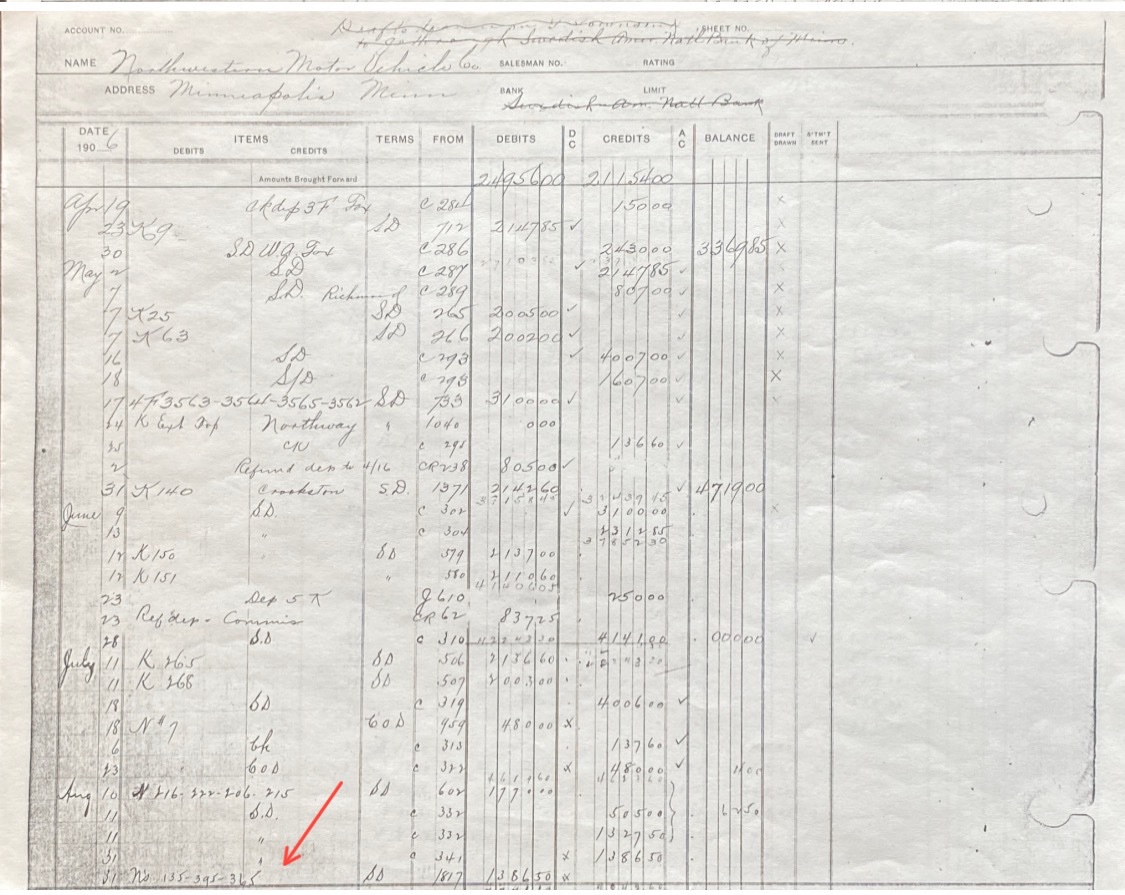 ACCOUNT NO. SHEET NO.
Drafts to
to go through Swedish Amer. Natl Bank of Minn.
NAME Northwestern Motor Vehicle Co SALESMAN NO. RATING
ADDRESS Minneapolis Minn BANK LIMIT
Swedish Am. Natl Bank
DATE ITEMS TERMS FROM DEBITS D C CREDITS A C BALANCE DRAFT DRAWN S'TM'T SENT
190 6 DEBITS CREDITS
Amounts Brought Forward 2495600 2115400
Apr 19 ck dep 3 F Fox C 284 15000 X
23 K 9 SD 712 214785 ✓ X
30 S.D. W.G. Fox C 286 243000 336985 X
May 2 SD C 287 ✓ 214785 ✓
7 S.D. Richmond C 289 80700 ✓ X
7 K 25 SD 265 200500 ✓ ✓ X
7 K 63 SD 266 200200 ✓ ✓ X
16 SD C 293 ✓ 400700 ✓ X
18 S/D C 293 160700 ✓ X
17 4 F 3563-3564-3565-3562 SD 733 310000 ✓ ✓ X
24 K Ext Top Northway " 1040 000
25 CK C 295 13660 ✓
2 Refund dep to 4/16 CR 238 80500 ✓
31 K 140 Crookston S.D. 1371 214260 ✓ 471900
3715845 3243945
June 9 S.D. C 302 ✓ 310000 X
13 " C 304 231285
3785230
12 K 150 " SD 579 213700
12 K 151 " 580 211060
4140605
23 Dep 5 K J 610 25000
23 Ref dep - Commis CR 62 83725
28 S.D C 310 4224330 414100 00000 ✓
July 11 K 265 SD 506 213660 4224330
11 K 268 SD 507 200300
18 SD C 319 400600 ✓
18 N # 7 COD 959 48000 X
6 Ck C 313 13760 ✓
23 COD C 322 X 48000 ✓
Aug 10 N 216-222-206-215 SD 602 177000
11 S.D. C 332 50500 6250
11 " C 332 132750
31 " C 341 X 138650
31 No. 135-395-365 SD 1817 138650 X